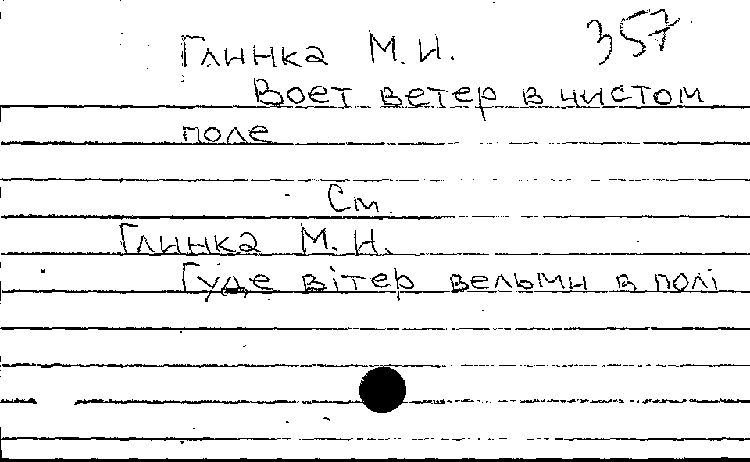 357
Глинка М.И.
Воет ветер в чистом
поле
См.
Глинка М.И.
Гуде вітер вельми в полі